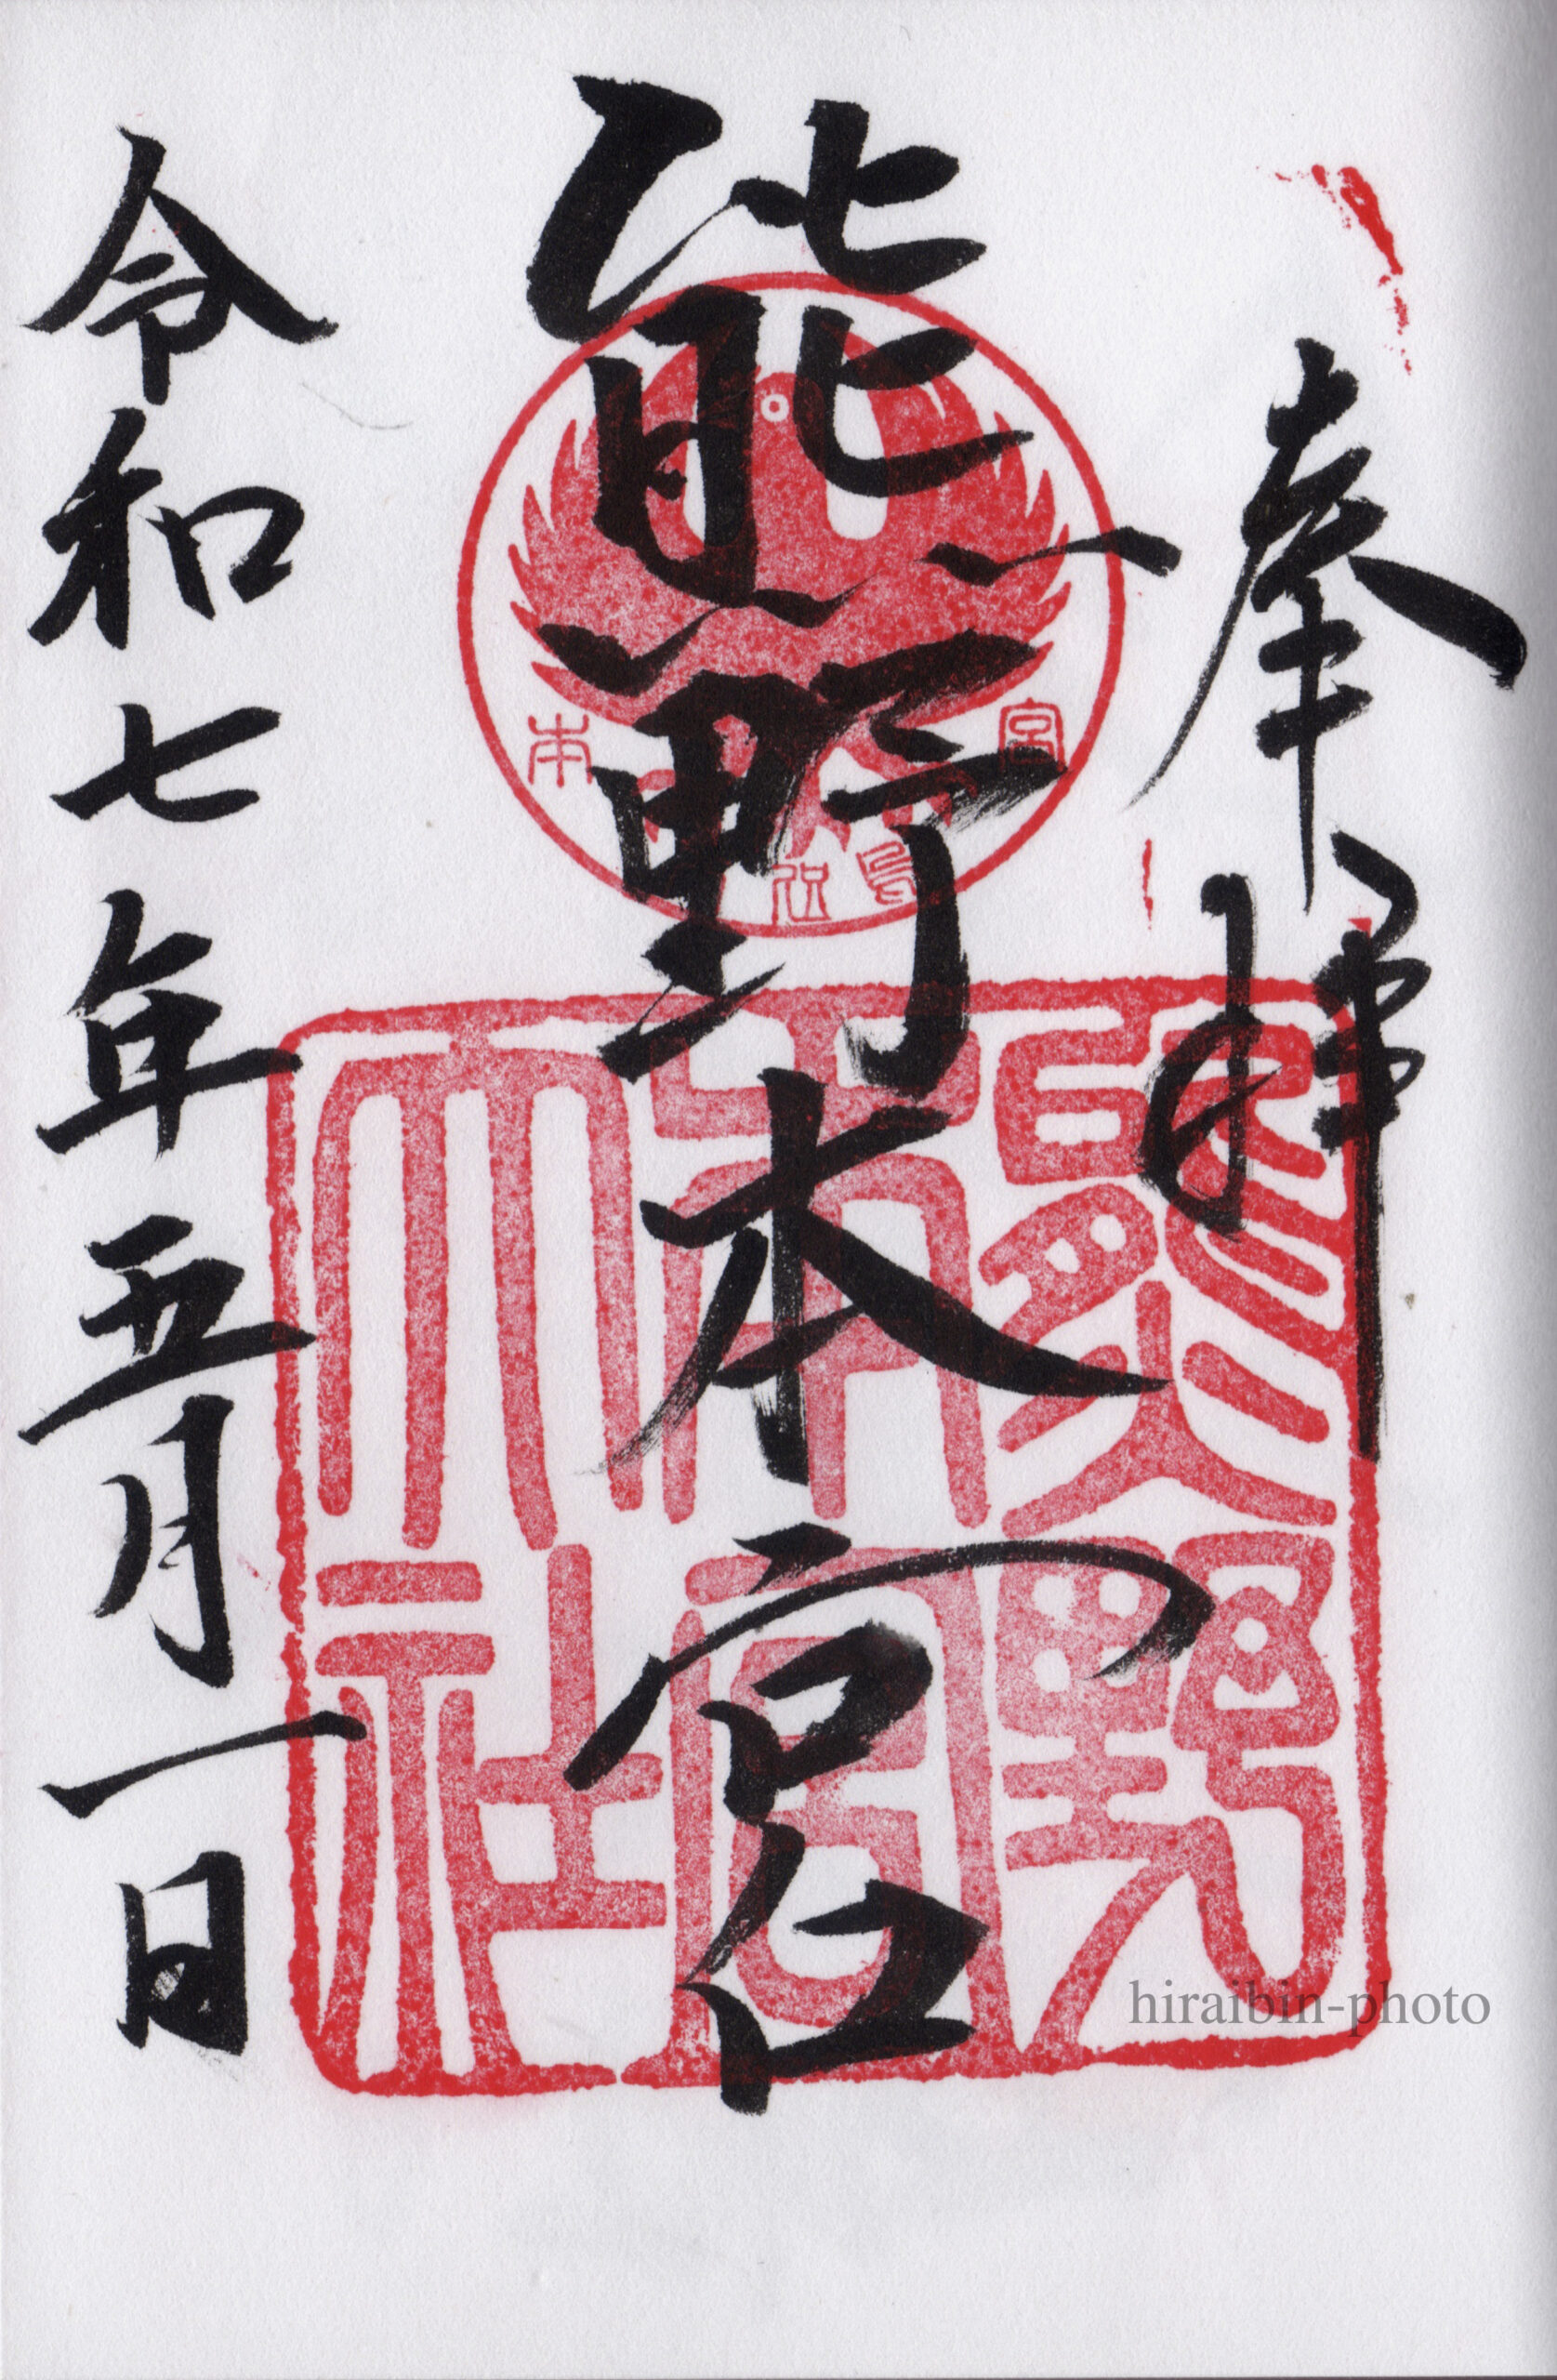 奉拝
熊野本宮
熊野
本宮
大社
令和七年五月一日
hiraibin-photo